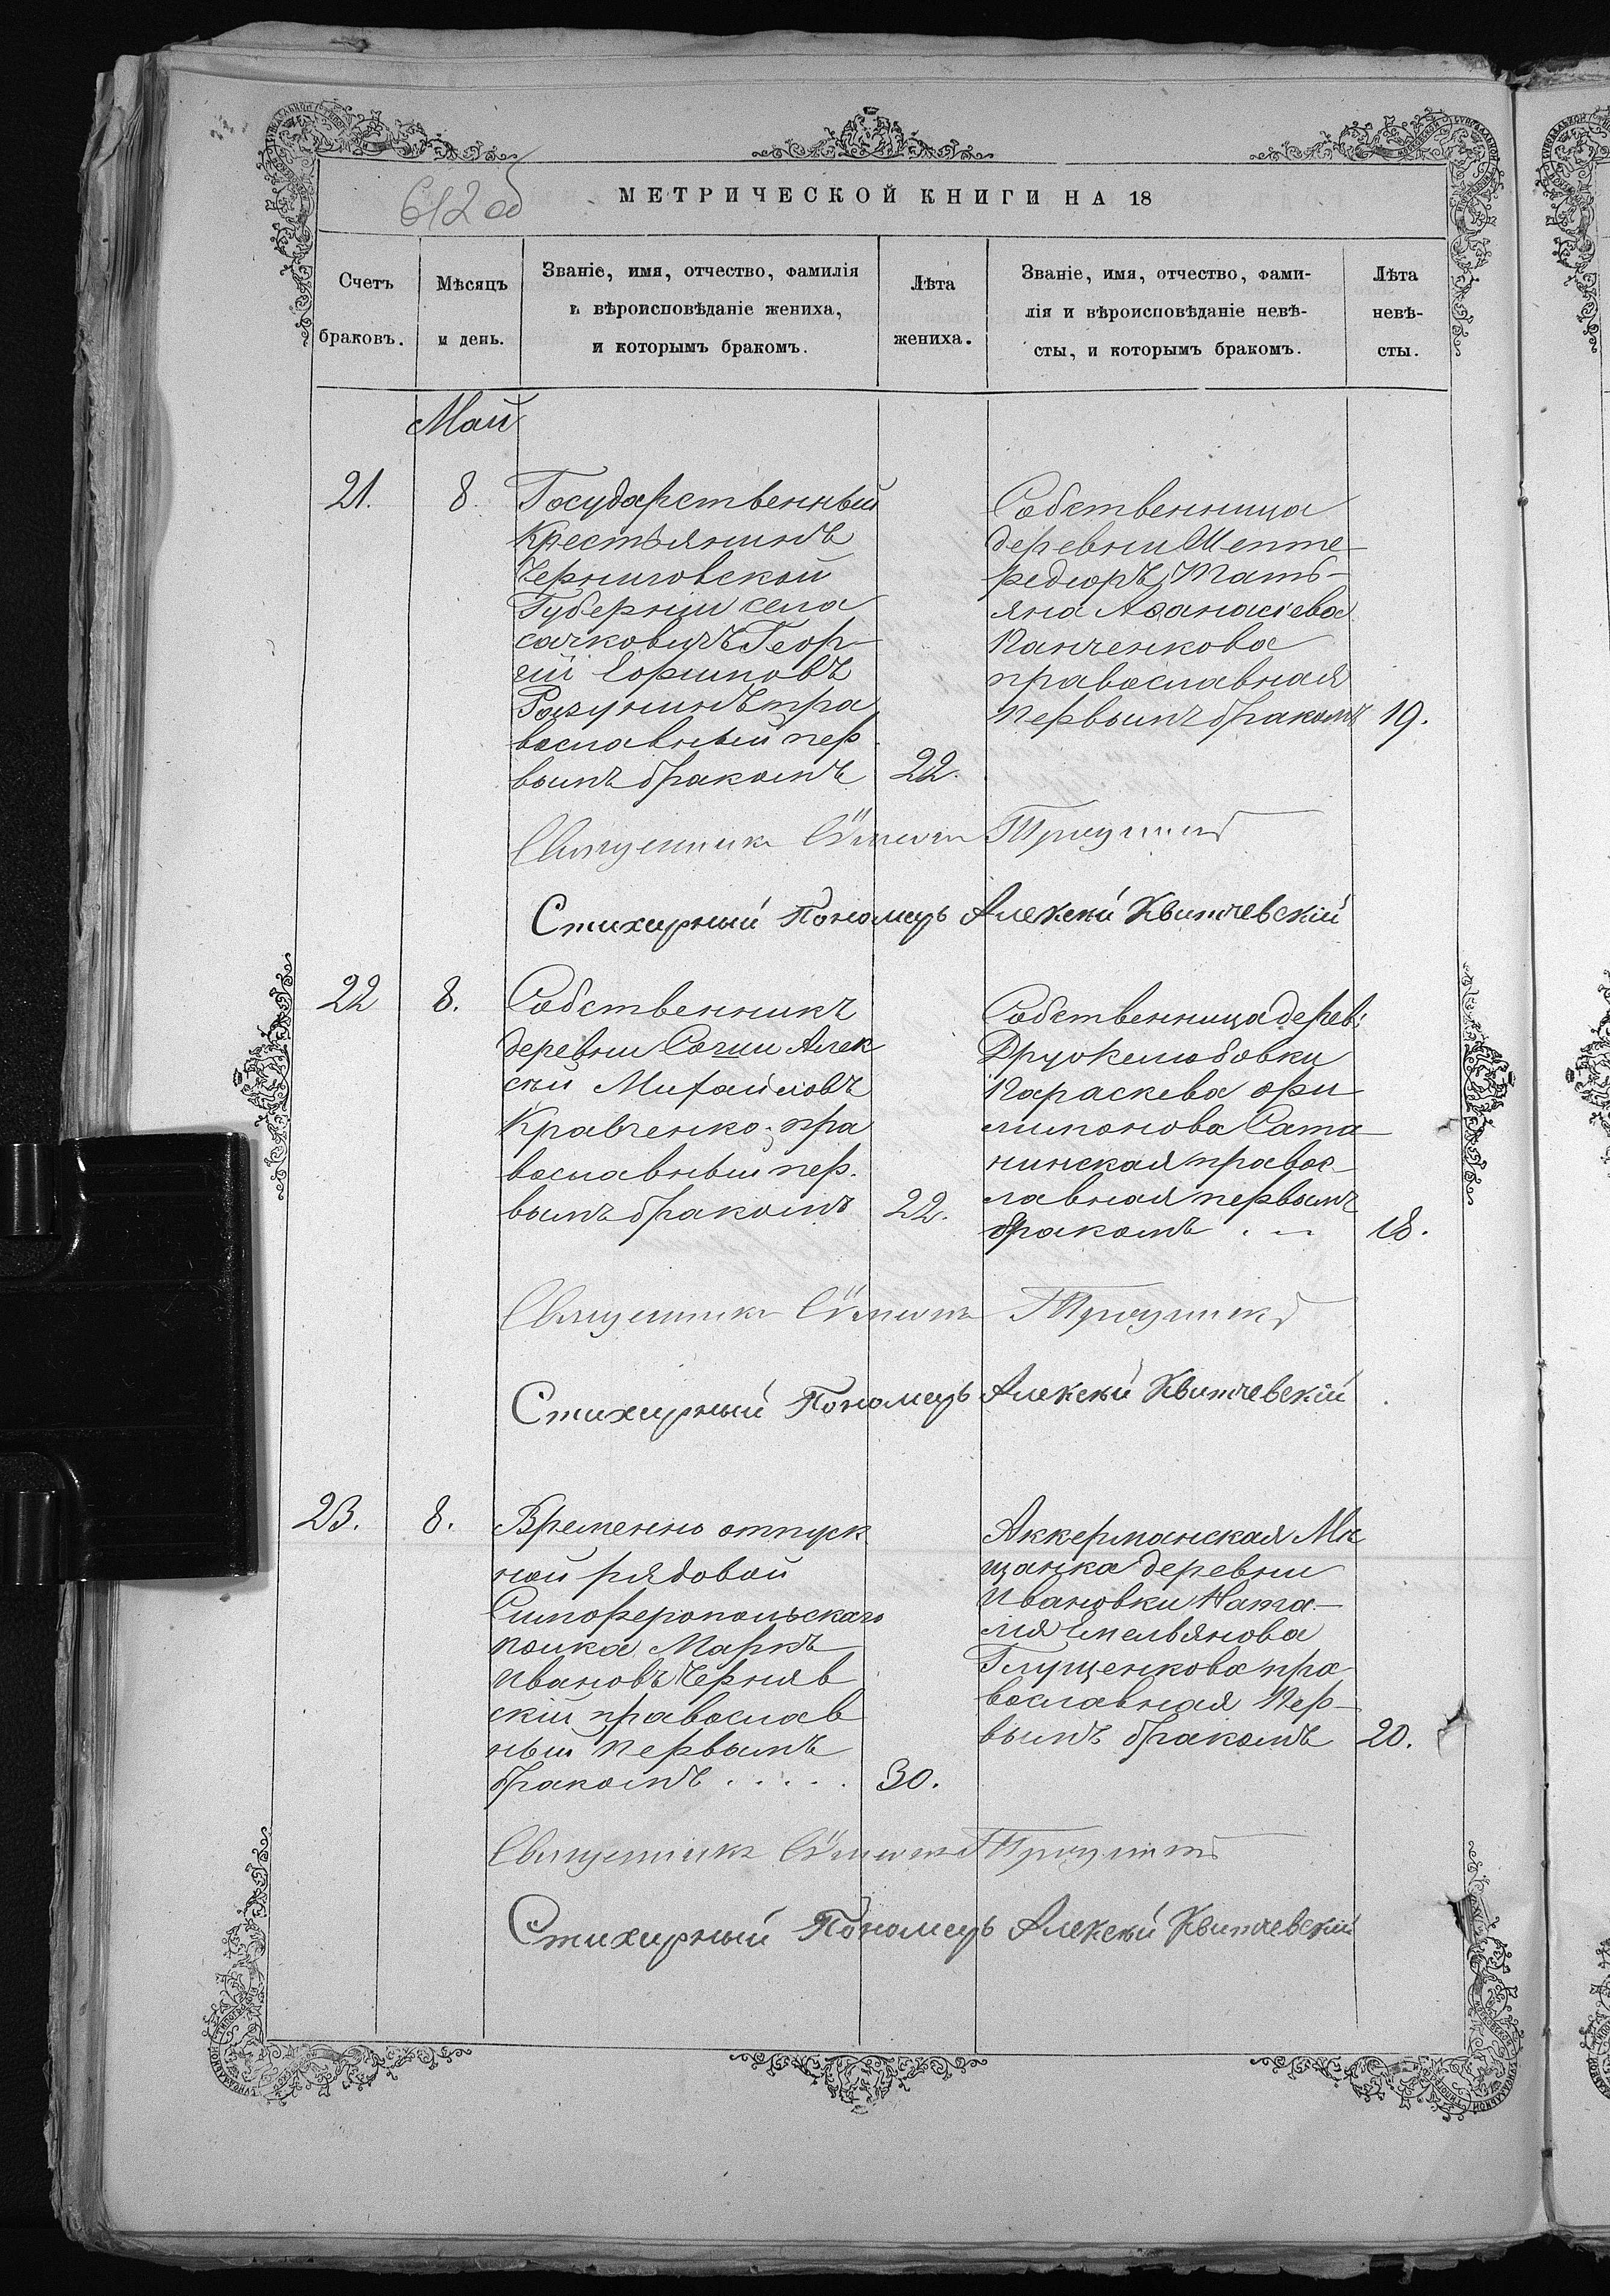 612 об
МЕТРИЧЕСКОЙ КНИГИ НА 18
Счетъ браковъ.
Мѣсяцъ и день.
Званіе, имя, отчество, фамилія
и вѣроисповѣданіе жениха,
и которымъ бракомъ.
Лѣта жениха.
Званіе, имя, отчество, фами-
лія и вѣроисповѣданіе невѣ-
сты, и которымъ бракомъ.
Лѣта невѣ-
сты.
Май
21.
8.
Государственный
Крестьянинъ
Черниговской
Губерніи села
Геор-
гій
пра
вославный пер
вымъ бракомъ
22.
Собственница
деревни
Тать-
яна Аѳанасіева
Панченкова
православная
первымъ бракомъ
19.
Священникъ
Стихирный Пономарь Алексѣй
22
8.
Собственникъ
деревни Алек
сѣй Михайловъ
Кравченко, пра
вославный пер.
вымъ бракомъ
22.
Собственница дерев:
Дружелюбовки
Параскева Фи
лимонова Сата-
нинская правос-
лавная первымъ
бракомъ . —
18.
Священникъ
Стихирный Пономарь Алексѣй
23.
8.
Временно отпуск
ной рядовой
Симферопольскаго
полка Маркъ
Ивановъ Черняв
скій православ
ный первымъ
бракомъ . . . . .
30.
Аккерманская Мѣ
щанка деревни
Ивановки Ната-
лія Емельянова
Глущенкова пра
вославная пер-
вымъ бракомъ
20.
Священникъ
Стихирный Пономарь Алексѣй